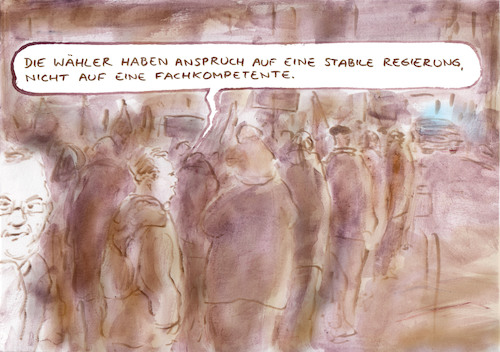 DIE WÄHLER HABEN ANSPRUCH AUF EINE STABILE REGIERUNG,
NICHT AUF EINE FACHKOMPETENTE.